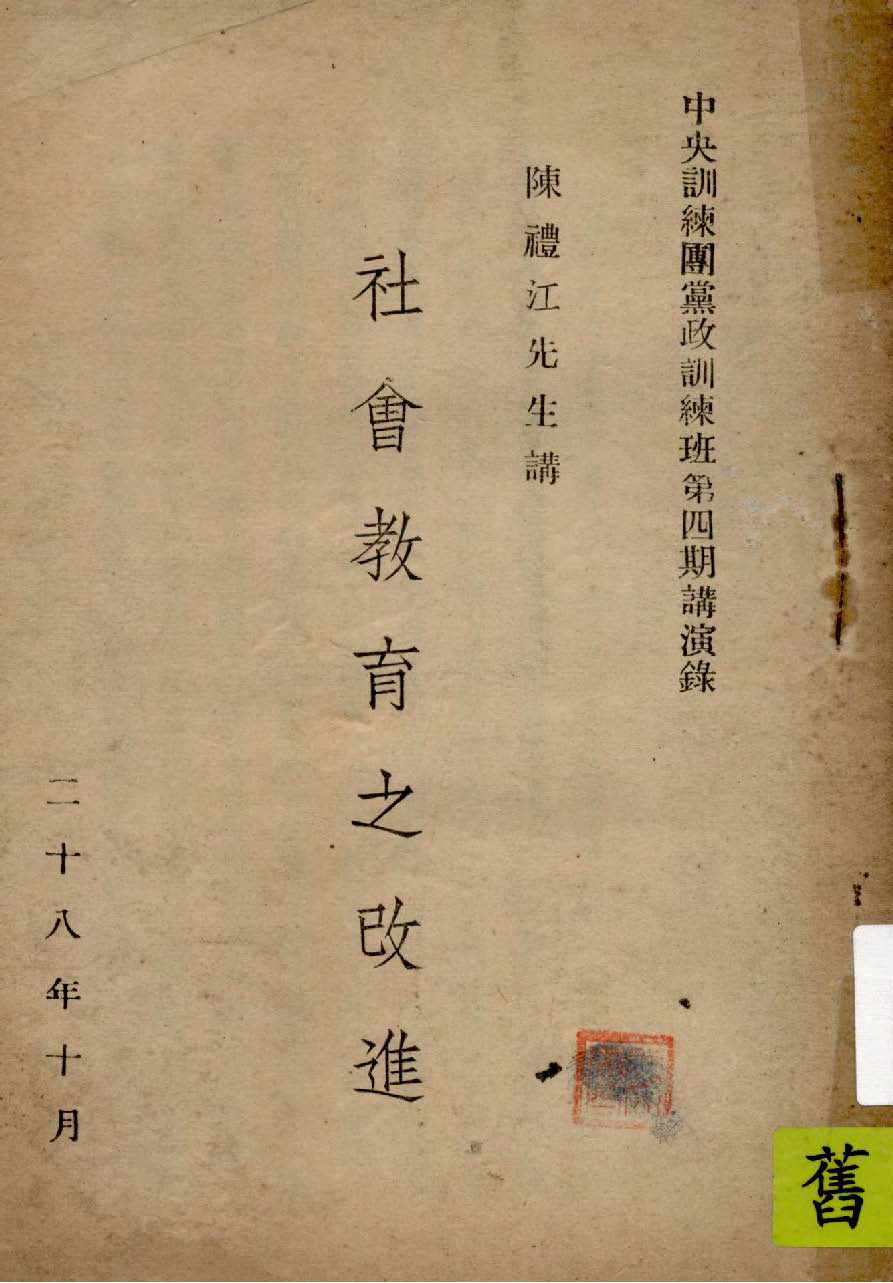 中央訓練團黨政訓練班第四期講演錄
陳禮江先生講
社會教育之改進
二十八年十月
舊